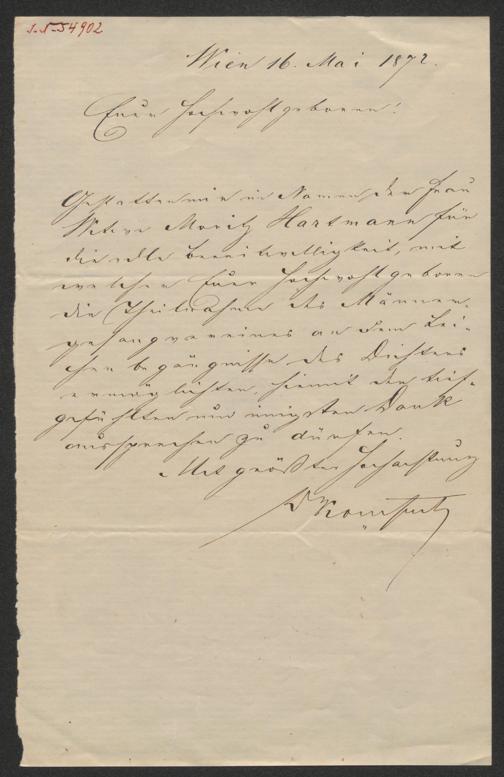 I.N. 54902
Wien 16. Mai 1872.
Euer Hochwohlgeboren!
Gestatten mir im Namen der Frau
Witwe Moritz Hartmann für
die edle bereitwilligkeit, mit
welcher Euer Hochwohlgeboren
die Theilnahme des Männer-
gesangvereines an dem Lei-
chenbegängnisse des Dichters
ermöglichten, hiemit den tief-
gefühlten und innigsten Dank
aussprechen zu dürfen.
Mit größter Hochachtung